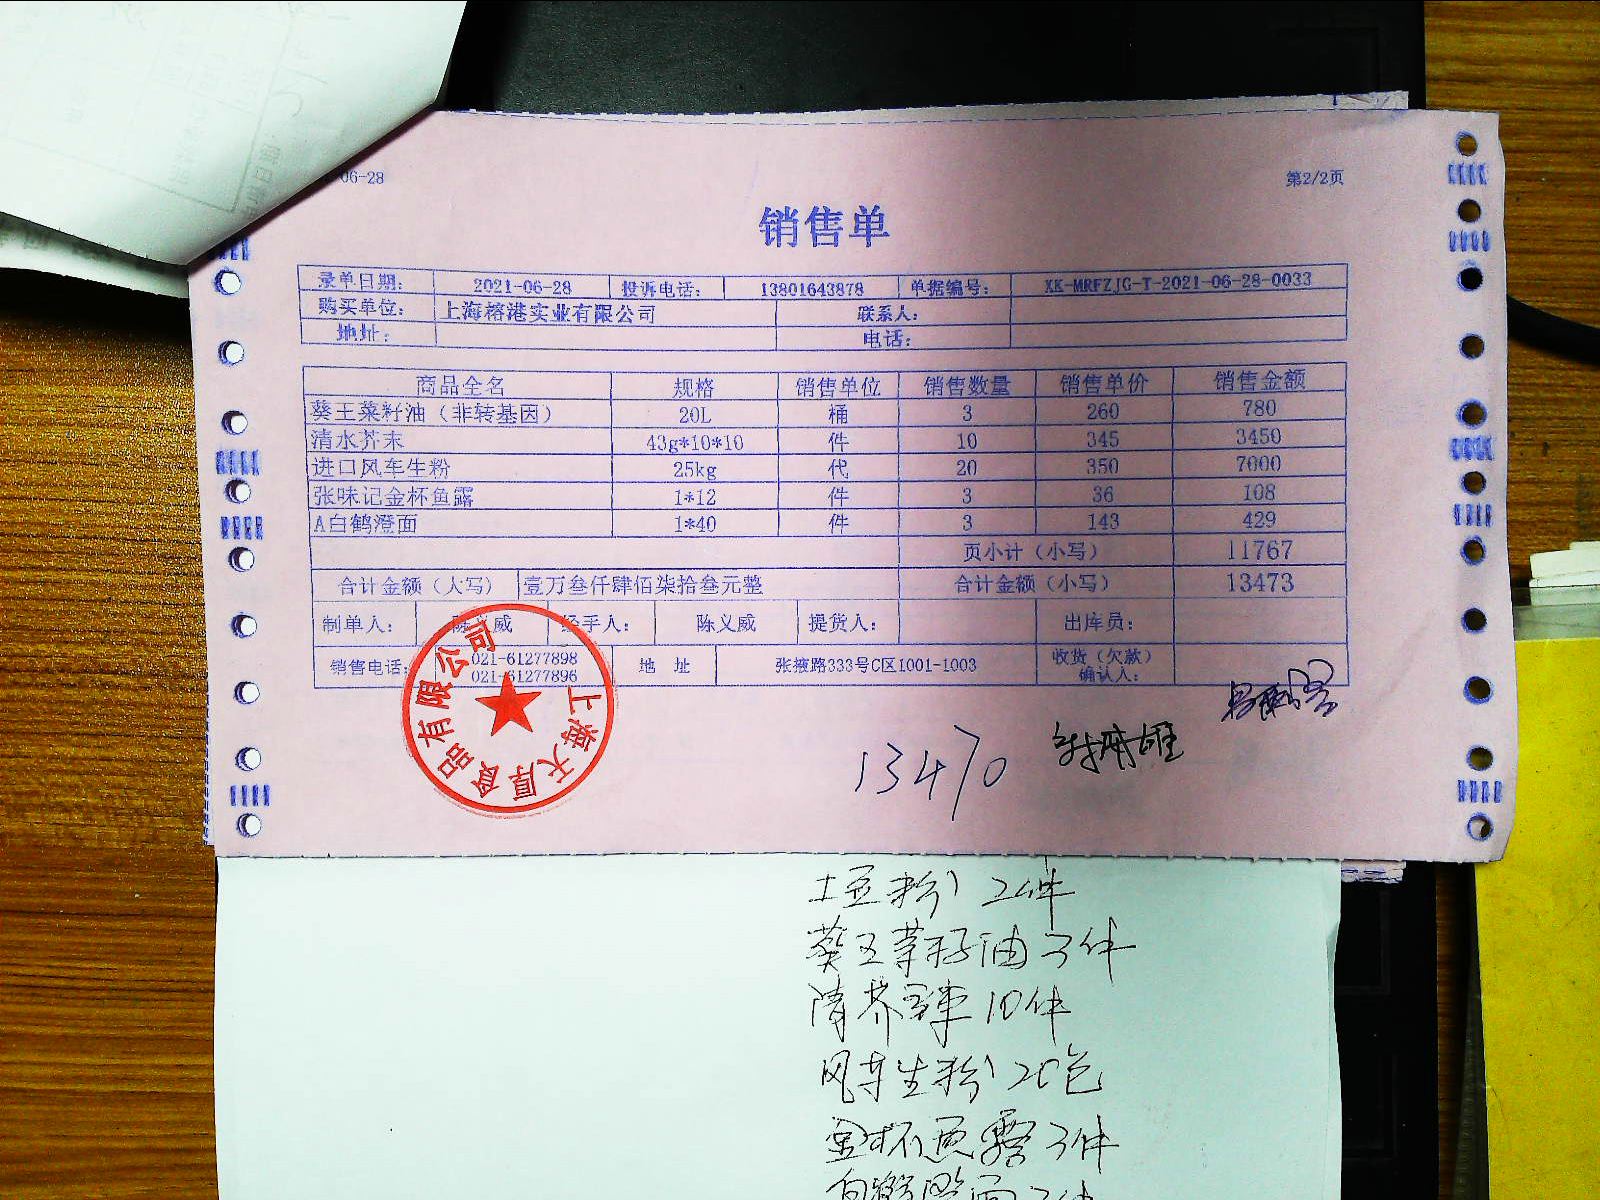 06-28
第2/2页
销售单
录单日期: 2021-06-28 投诉电话: 13801643878 单据编号: XK-MRFZJG-T-2021-06-28-0033
购买单位: 上海榕港实业有限公司 联系人:
地址: 电话:
商品全名 规格 销售单位 销售数量 销售单价 销售金额
葵王菜籽油（非转基因） 20L 桶 3 260 780
清水芥末 43g*10*10 件 10 345 3450
进口风车生粉 25kg 代 20 350 7000
张味记金杯鱼露 1*12 件 3 36 108
A白鹤澄面 1*40 件 3 143 429
页小计（小写） 11767
合计金额（大写） 壹万叁仟肆佰柒拾叁元整 合计金额（小写） 13473
制单人: 陈义威 经手人: 陈义威 提货人: 出库员:
销售电话: 021-61277898 地 址 张掖路333号C区1001-1003 收货（欠款）
021-61277896 确认人:
上海天厚食品有限公司
13470
土豆粉 2件
葵王菜籽油 3件
清芥辣 10件
风车生粉 20包
金杯鱼露 3件
白鹤澄面 3件